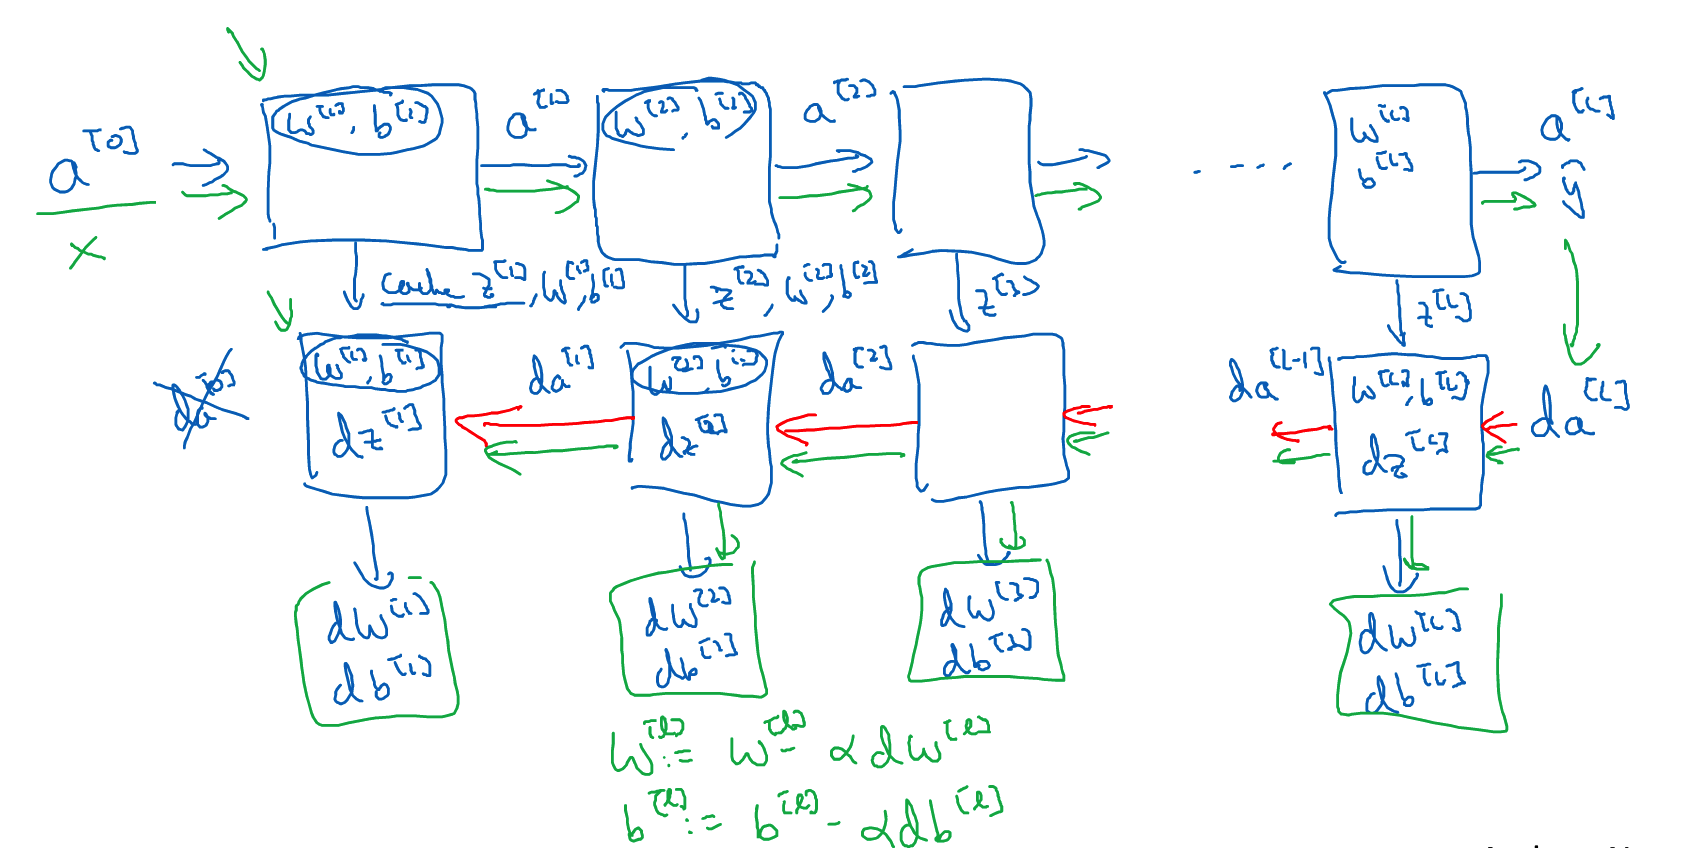 a^[0]
x
w^[1], b^[1]
a^[1]
w^[2], b^[2]
a^[2]
....
w^[L]
b^[L]
a^[L]
ŷ
cache z^[1], w^[1], b^[1]
z^[2], w^[2] b^[2]
z^[3]
z^[L]
da^[0]
w^[1], b^[1]
dz^[1]
da^[1]
w^[2], b^[2]
dz^[2]
da^[2]
da^[L-1]
w^[L], b^[L]
dz^[L]
da^[L]
dw^[1]
db^[1]
dw^[2]
db^[2]
dw^[3]
db^[3]
dw^[L]
db^[L]
w^[l] := w^[l] - α dw^[l]
b^[l] := b^[l] - α db^[l]